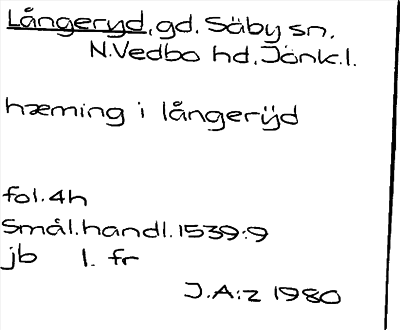 Långeryd, gd. Säby sn.
N.Vedbo hd. Jönk.l.
hæming i långerÿd
fol.4h
Smål.handl.1539:9
jb l. fr
J.A:z 1980